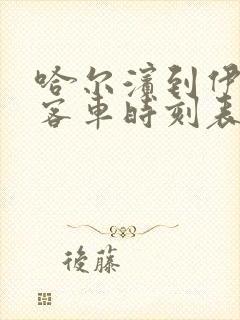 哈尔滨到伊
客车时刻表
後藤